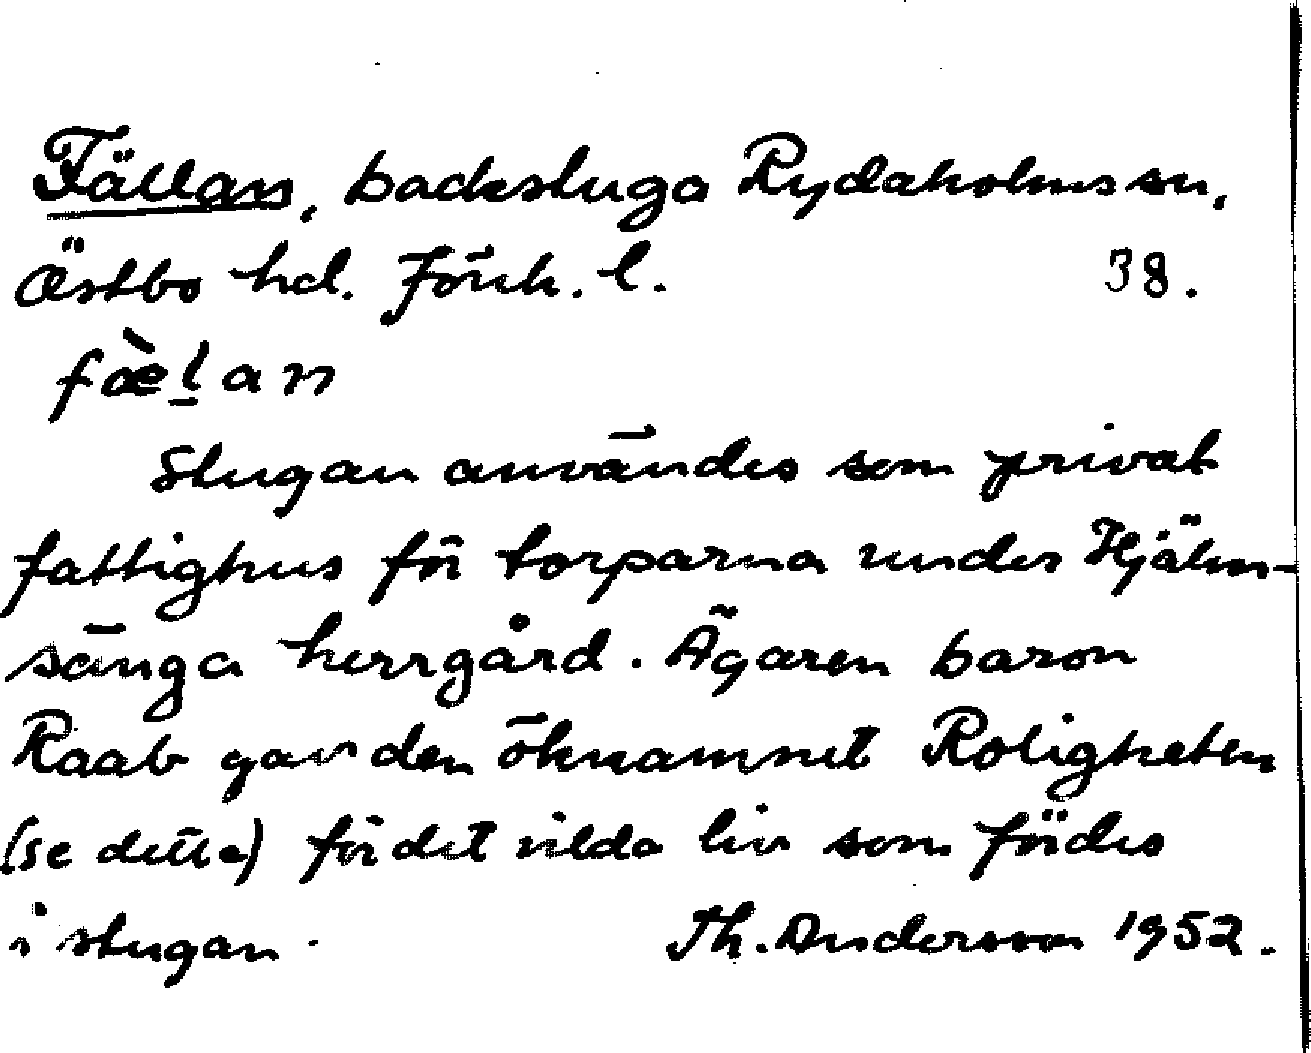 Fällan, backstuga Rydaholms sn,
Östbo hd. Jönk. l. 38.
fæ̀l̠an
Stugan användes som privat
fattighus för torparna under Hjälm-
sänga herrgård. Ägaren baron
Raab gav den öknamnet Roligheten
(se detta) för det vilda liv som fördes
i stugan. Th. Andersson 1952.